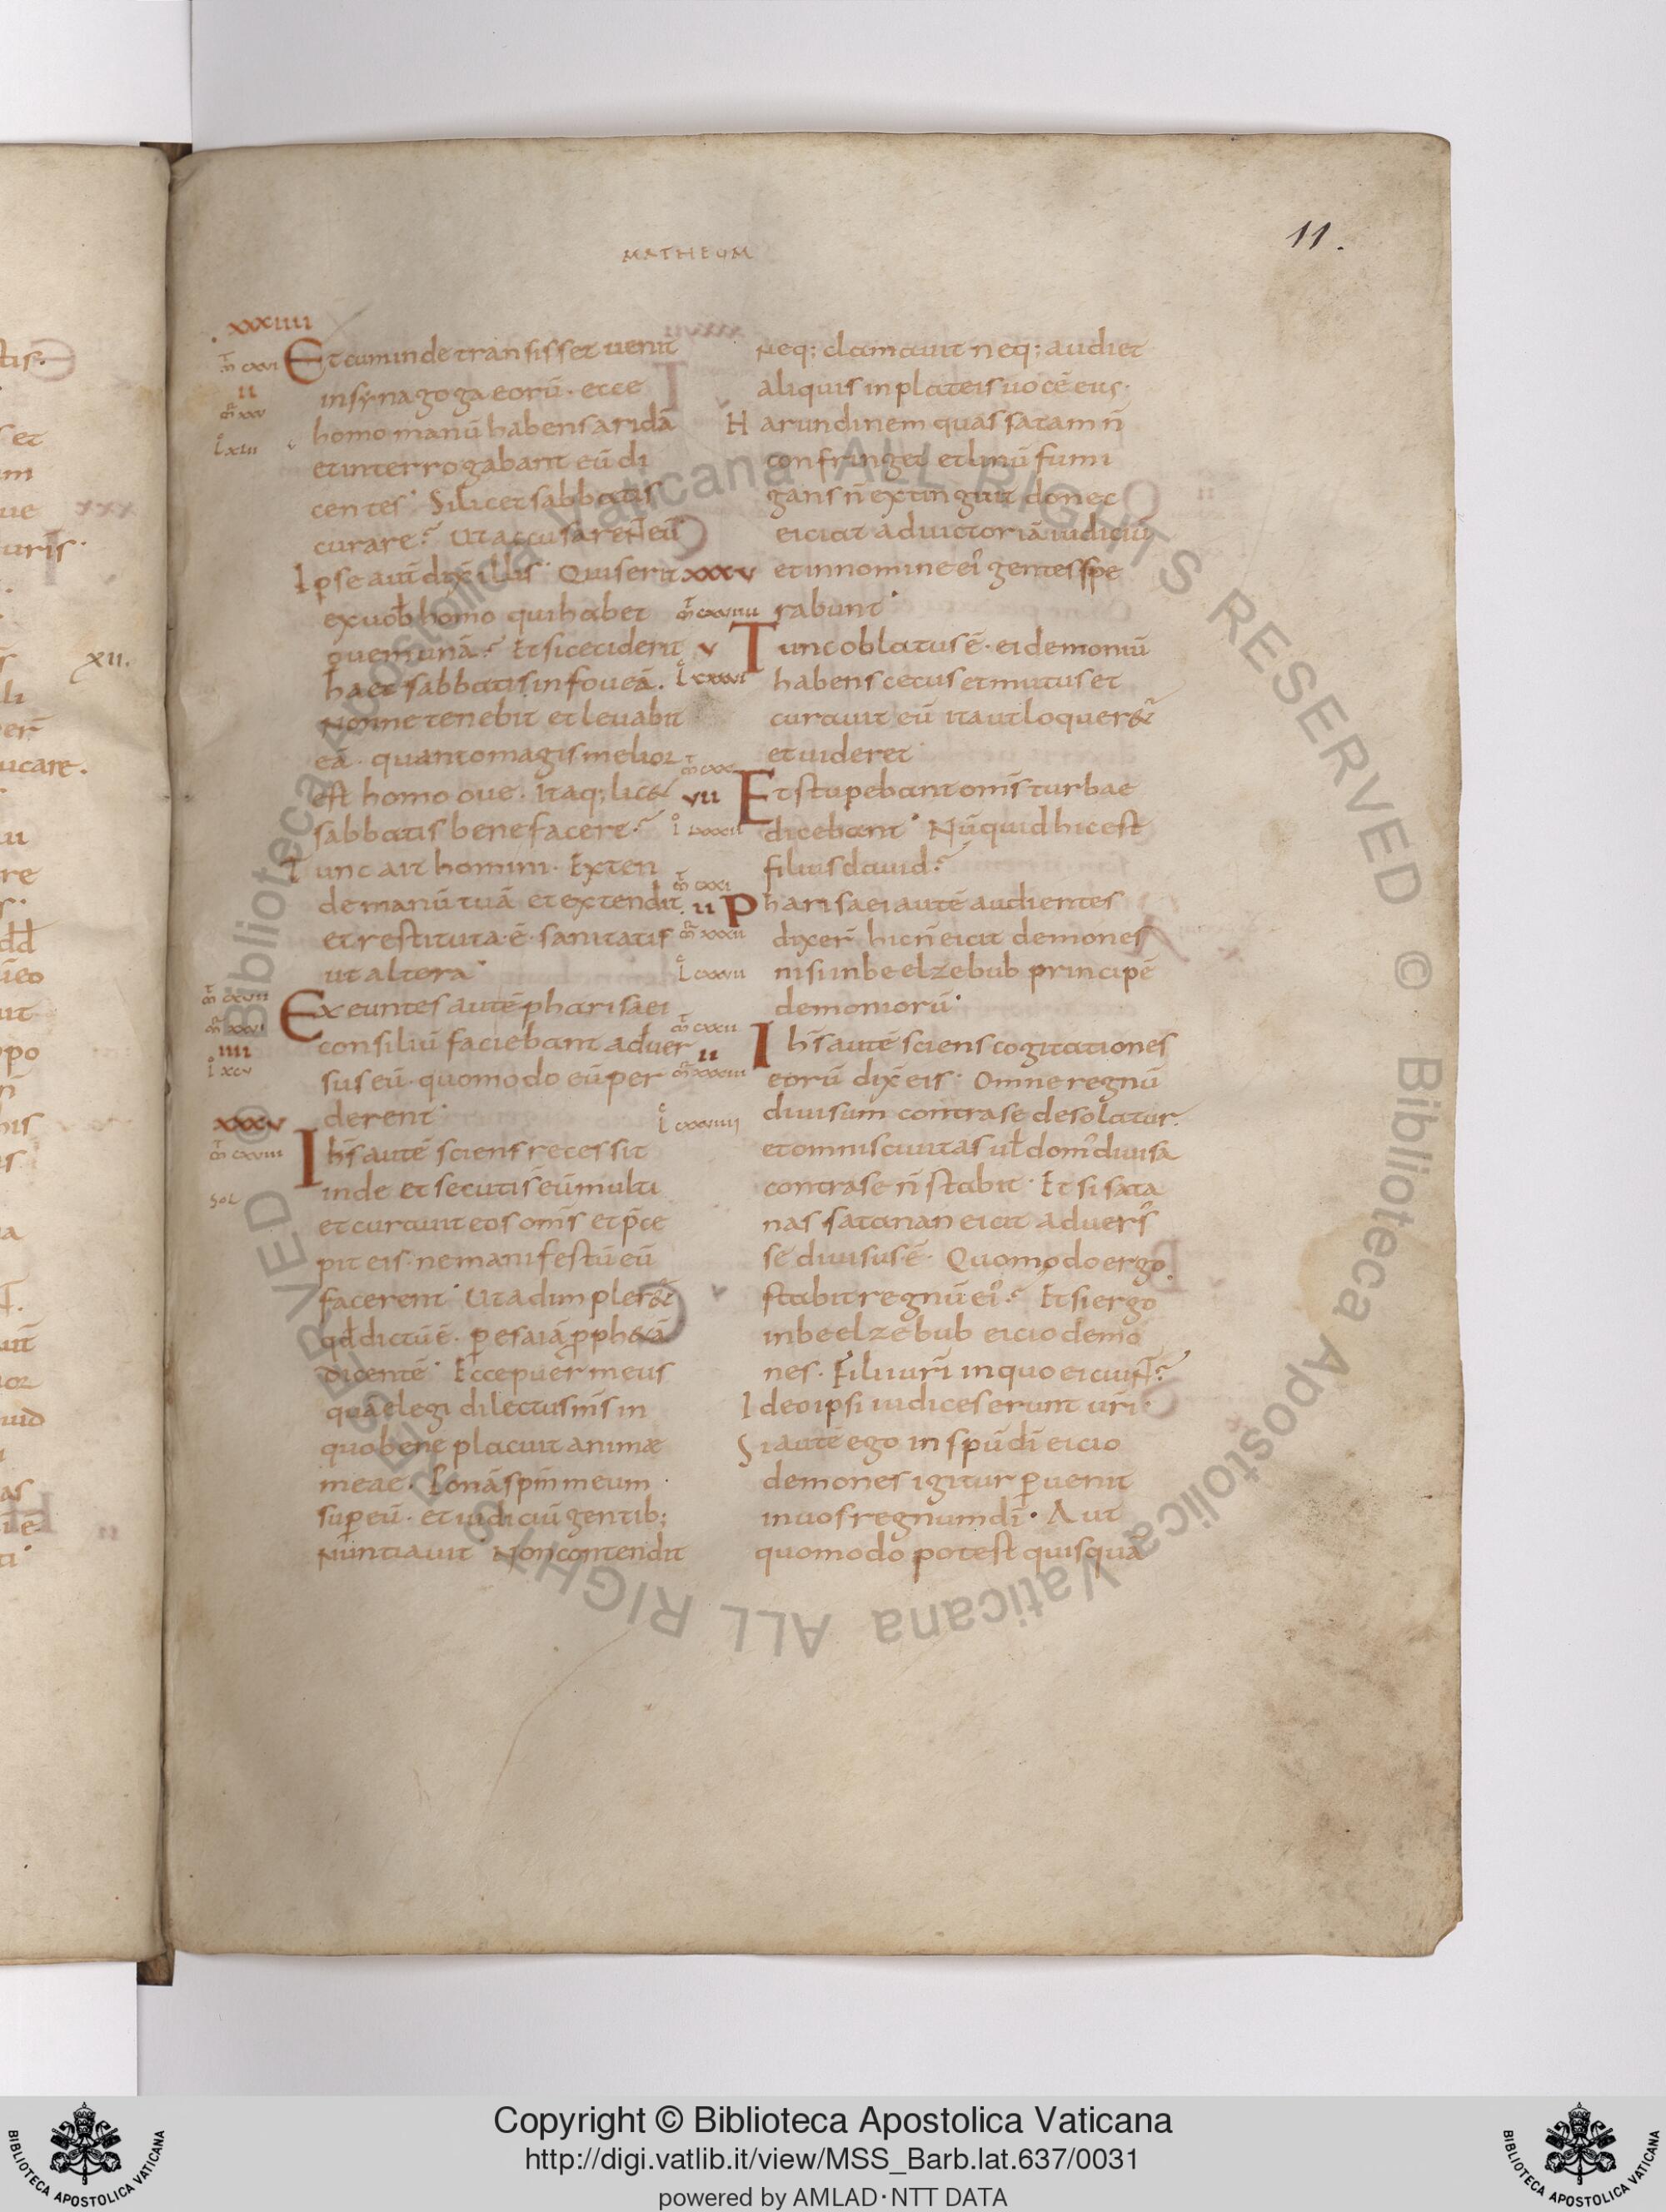 MATHEUM
11.
xxxiiii
Et cum inde transisset uenit
in synagoga eorū · et ece
homo manū habens aridā
et interrogabant eū di
centes · Si licet sabbatis
curare? Ut accusarent eū
Ipse aut̄ dix̄ illis · Quis erit
ex uob̄ homo qui habet
ouem unā? Et si ceciderit
haec sabbatis in foueā.
Nonne tenebit et leuabit
eā · quanto magis melior
est homo oue. Itaq; lic&
sabbatis bene facere?
Tunc ait homini · Exten
de manū tuā et extendit
et restituta · ē · sanitati
ut altera ·
Exeuntes autē pharisaei
consiliū faciebant aduer
sus eū · quomodo eū per
derent ·
xxxv
Ihs̄ autē sciens recessit
inde et secuti s̄ eū multi
et curauit eos oms̄ et p̄ce
pit eis · ne manifestū eū
facerent · Ut adimpler&
qđ dictū ē · p esaiā pph&ā
dicentē · Ecce puer meus
quā elegi dilectus ms̄ in
quo bene placuit animæ
meae. Ponā spm̄ meum ·
sup eū · et iudiciū gentib;
Nuntiauit · Non contendit
Neq; clamauit neq; audiet
aliquis in plateis uocē eius ·
Harundinem quassatam n̄
confringet et linū fumi
gans n̄ extinguit donec
eiciat ad uictoriā iudiciū
et in nomine ei' gentes spe
rabunt ·
xxxv
v
Tunc oblatus ē · ei demoniū
habens cecus et mutus et
curauit eū ita ut loquer&
et uideret
vii
Et stupebant oms̄ turbae
dicebant · Nūquid hic est
filius dauid?
ii
Pharisaei autē audientes
dixer̄ hic n̄ eicit demones
nisi in beelzebub principē
demoniorū ·
ii
Ihs̄ autē sciens cogitationes
eorū dix̄ eis · Omne regnū
diuisum contra se desolatur.
et omnis ciuitas ul̄ dom' diuisa
contra se n̄ stabit · Et si sata
nas satanan eicit aduers'
se diuisus ē · Quomodo ergo
stabit regnū ei'? Et si ergo
in beelzebub eicio demo
nes · Filii uri̅ in quo eiciunt?
Ideo ipsi iudices erunt uri̅ ·
Si autē ego in spū di̅ eicio
demones igitur puenit
in uos regnum di̅ · Aut
quomodo potest quisquā
XII.
© Biblioteca Apostolica Vaticana ALL RIGHTS RESERVED
© Biblioteca Apostolica Vaticana ALL RIGHTS RESERVED
Copyright © Biblioteca Apostolica Vaticana
http://digi.vatlib.it/view/MSS_Barb.lat.637/0031
powered by AMLAD·NTT DATA
BIBLIOTECA APOSTOLICA VATICANA
BIBLIOTECA APOSTOLICA VATICANA